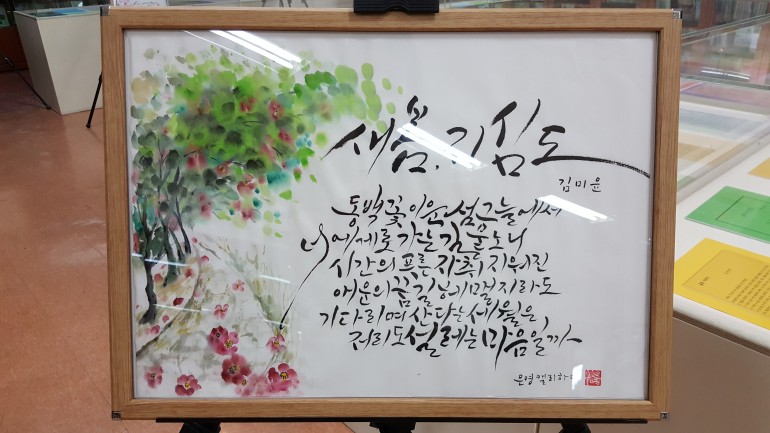 새봄. 지심도
김미윤
동백꽃 이운 섬그늘에서
너에게로 가는 길 물노니
시간의 푸른 자취 지워진
애운의 꿈길 헤맬지라도
기다리며 산다는 세월은,
저리도 설레는 마음일까
은영캘리하